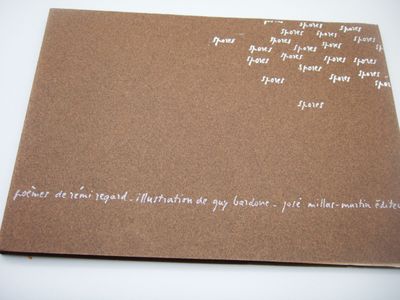 spores spores
spores spores spores
spores spores spores spores
spores spores spores sp
spores spores spores spores
spores spores spores
sp
spores
poèmes de rémi regard - illustration de guy bardone - josé millas-martin éditeu